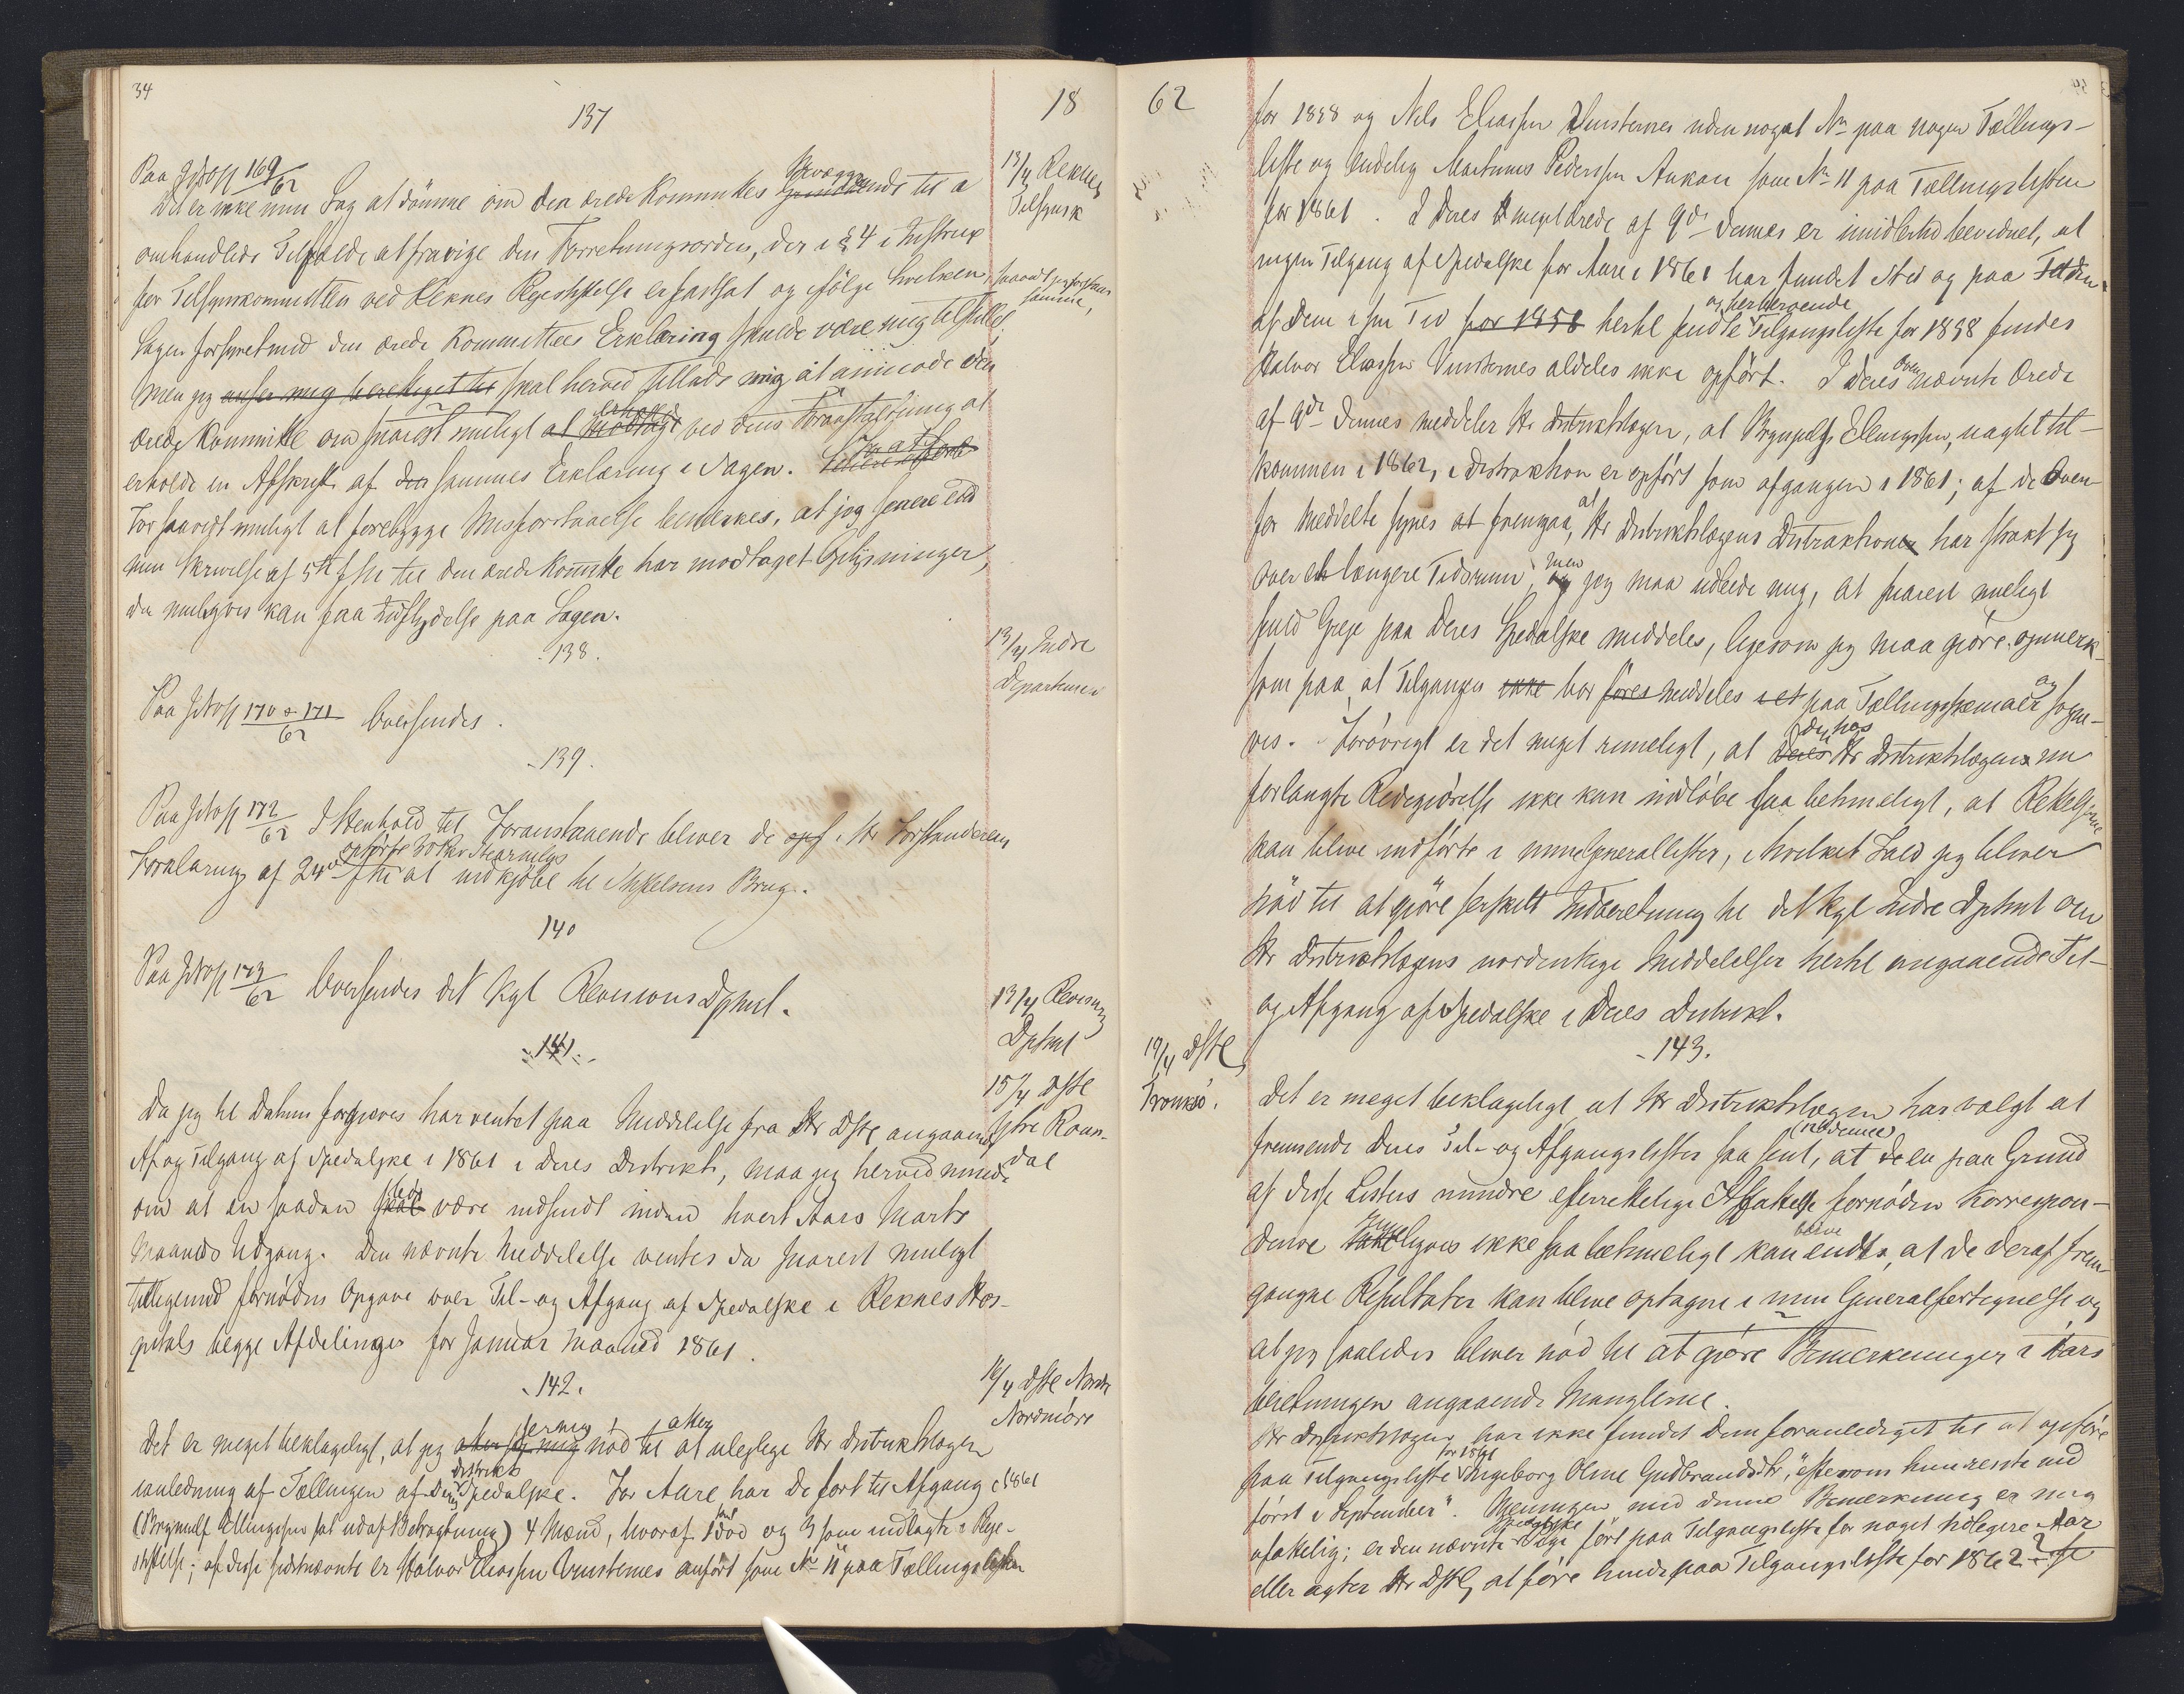 34
137
18
Paa JNo 169/62
13/4 Reknes
Tilsynsk
Det er ikke min Sag at dömme om den ærede Kommittes Bevæggrunde til i
omhandlede Tilfælde at fravige den Forretningsorden, der i § 4 i Instrux
for Tilsynskommitteen ved Reknes Plejestiftelse er fastsat og ifölge hvilken
Sagen forsynet med den ærede Kommittees Erklæring skulde være mig tilstillet.
Men jeg anser mig berettiget til skal herved tillade mig at anmode den
ærede Kommitte om snarest muligt at modtage erholde ved dens Foranstaltning at
erholde en Afskrift af den sammes Erklæring i Sagen.
For saavidt muligt at forebygge Misforstaaelse bemærkes, at jeg senere end
min Skrivelse af 5te f M til den ærede Kommitte har modtaget Oplysninger,
der muligvis kan faa Indflydelse paa Sagen.
138.
13/4 Indre
Departement
Paa JNo 170 & 171/62 Oversendes.
139.
Paa JNo 172/62 I Henhold til Foranstaaende bliver de opf i Hr Forstanderens
Forklaring af 24de f M opförte at indkjöbe til Stiftelsens Brug.
140
Paa JNo 173/62 Oversendes det Kgl Revisions Dptmt.
13/4 Revisions
Dptmt
141.
15/4 Dstl
Da jeg til Datum forgjæves har ventet paa Meddelelse fra Hr Dstl angaaende
Af og Tilgang af Spedalske i 1861 i Deres Distrikt, maa jeg herved minde
om at en saadan skal bör være indsendt inden hvert Aars Marts
Maaneds Udgang. Den nævnte Meddelelse ventes da snarest muligt
tilligemed fornöden Opgave over Til- og Afgang af Spedalske i Reknes Hos-
pitals begge Afdelinger for Januar Maaned 1861.
142.
16/4 Dstl Nordre
Nordmöre
Det er meget beklageligt, at jeg atter ser mig nöd til atter at uleilige Hr Distriktslægen
i anledning af Tællingen af Deres Distrikts Spedalske. For Aure har De fört til Afgang i 1861
(Brynnulf Ellingsen sat ud af Betragtning) 4 Mænd, hvoraf 1 död og 3 som indlagte i Pleje-
stiftelse; af disse sidstnævnte er Halvor Eliassen Vinsternes anfört som No 11 paa Tællingslisten
62
for 1858 og Nils Eliassen Vinsternes uden noget No paa nogen Tællings-
liste og endelig Martinus Pedersen Aukan som No 11 paa Tællingslisten
for 1861. I Deres meget ærede af 9de dennes er imidlertid bevidnet, at
ingen Tilgang af Spedalske for Aure i 1861 har fundet Sted og paa den
af Dem i sin Tid for 1858 hertil sendte og herberoende Tilgangsliste for 1858 findes
Halvor Eliassen Vinsternes aldeles ikke opfört. I Deres oven nævnte ærede
af 9de dennes meddeler Hr Distriktslægen, at Brynnulf Ellingsen, uagtet til-
kommen i 1862, i Distraktion er opfört som afgangen i 1861; af de Oven-
for Meddelte synes at fremgaa, at Hr Distriktslægens Distraktioner har strakt sig
over et længere Tidsrum, og men jeg maa udbede mig, at snarest muligt
fuld Greje paa Deres Spedalske meddeles, ligesom jeg maa gjöre opmærk-
som paa, at Tilgangen ikke bör föres meddeles i et paa Tællingsskemaer og sogne-
vis. Forövrigt er det meget rimeligt, at Deres den hos Hr Distriktslægen nu
forlangte Redegjörelse ikke kan indlöbe saa betimeligt, at Rettelserne
kan blive indförte i mine Generallister, i hvilket Fald jeg bliver
nöd til at gjöre særskilt Indberetning til det Kgl Indre Dptmt om
Hr Distriktslægens uordentlige Meddelelser hertil angaaende Til-
og Afgang af Spedalske i Deres Distrikt.
143.
19/4 Dstl
Tromsö.
Det er meget beklageligt at Hr Distriktslægen har valgt at
fremsende Deres Til- og Afgangslister saa sent, at den paa Grund
af disse Listers mindre efterrettelige Affattelse fornödne Korrespon-
dence rimeligvis ikke saa betimeligt kan blive endt, at de deraf frem-
gangne Resultater kan blive optagne i min Generalfortegnelse og
at jeg saaledes bliver nöd til at gjöre Bemærkninger i Aars
beretningen angaaende Manglerne.
Hr Distriktslægen har ikke fundet Dem foranlediget til at opföre
paa Tilgangsliste for 1861 Ingeborg Oline Gudbrandsdtr, "eftersom hun rejste ind
först i September". Meningen med denne Bemærkning er mig
ufattelig; er den nævnte spedalske Pige fört paa Tilgangsliste for noget tidligere Aar
eller agter Hr Dstl, at före hende paa Tilgangsliste for 1862?